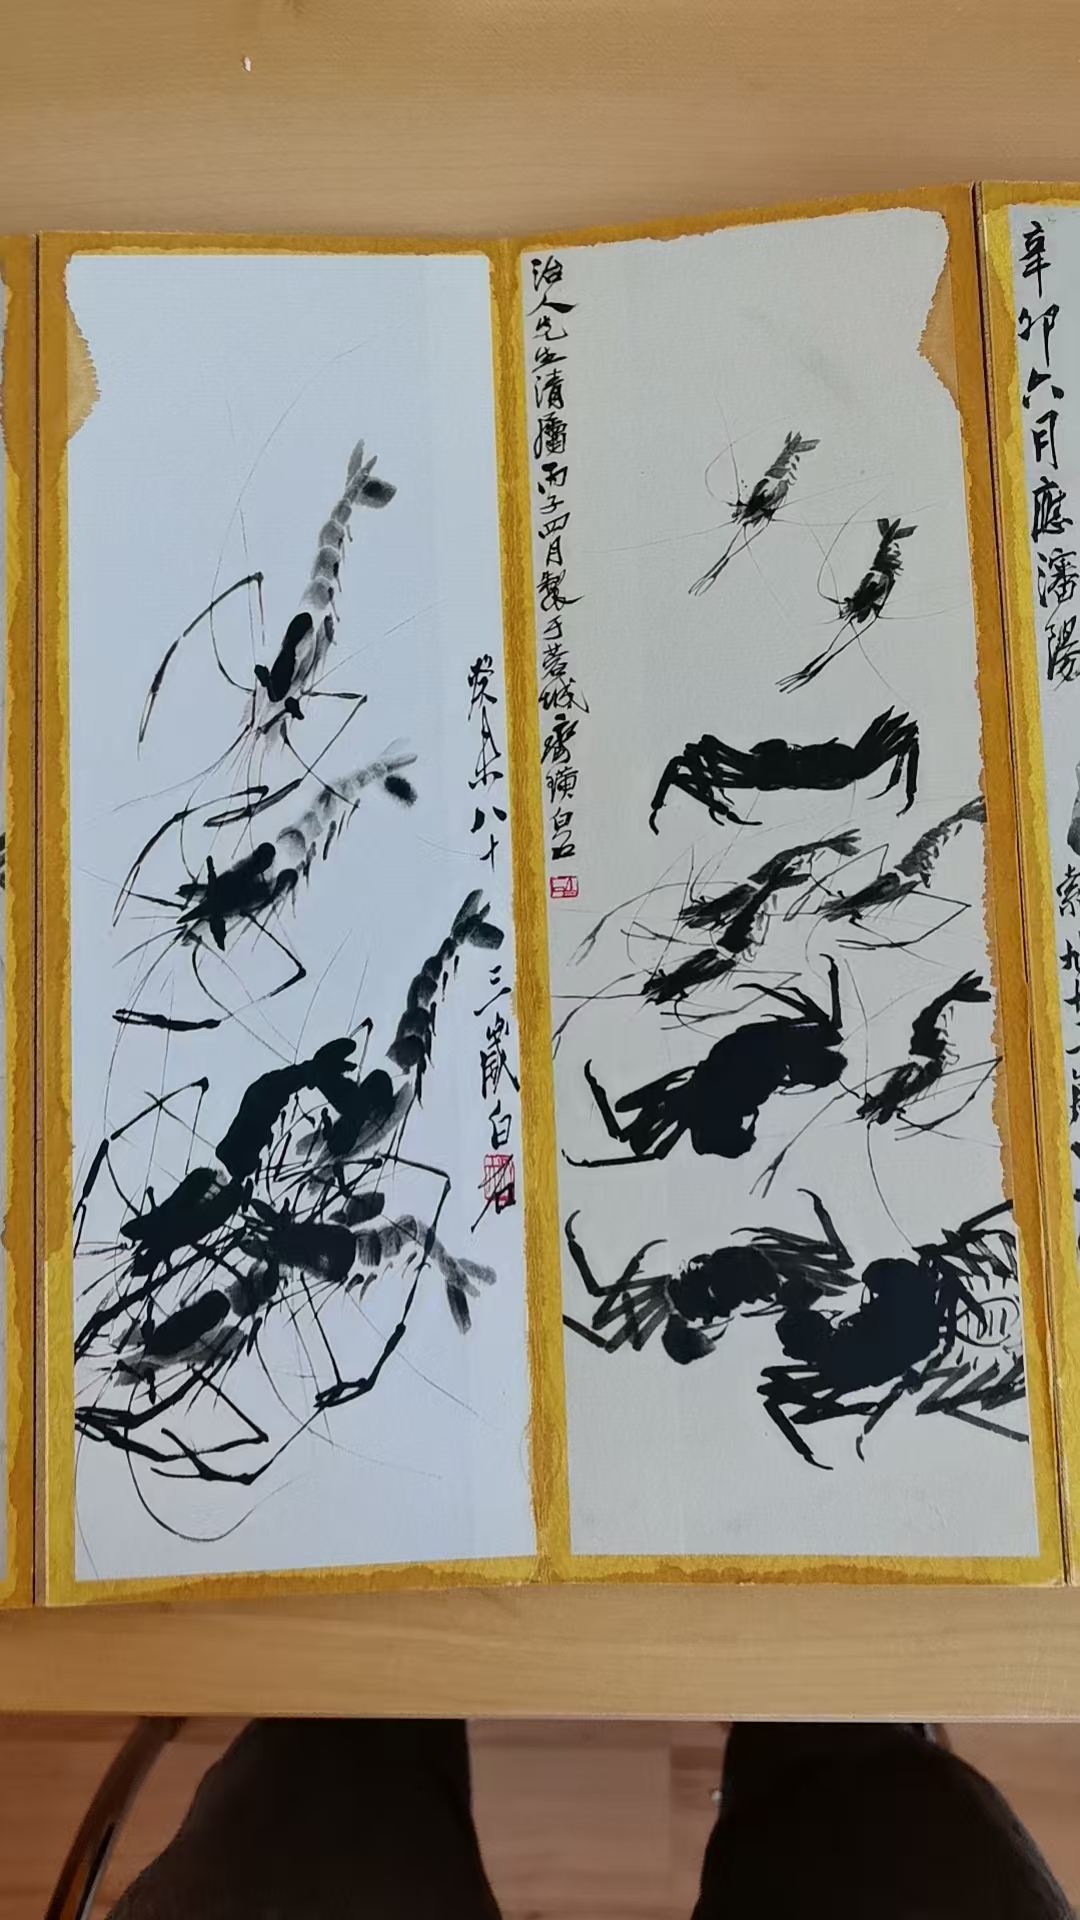 辛卯六月應瀋陽
治人先生清丙子四月製于蓉城齊璜白石
癸未八十三歲白石